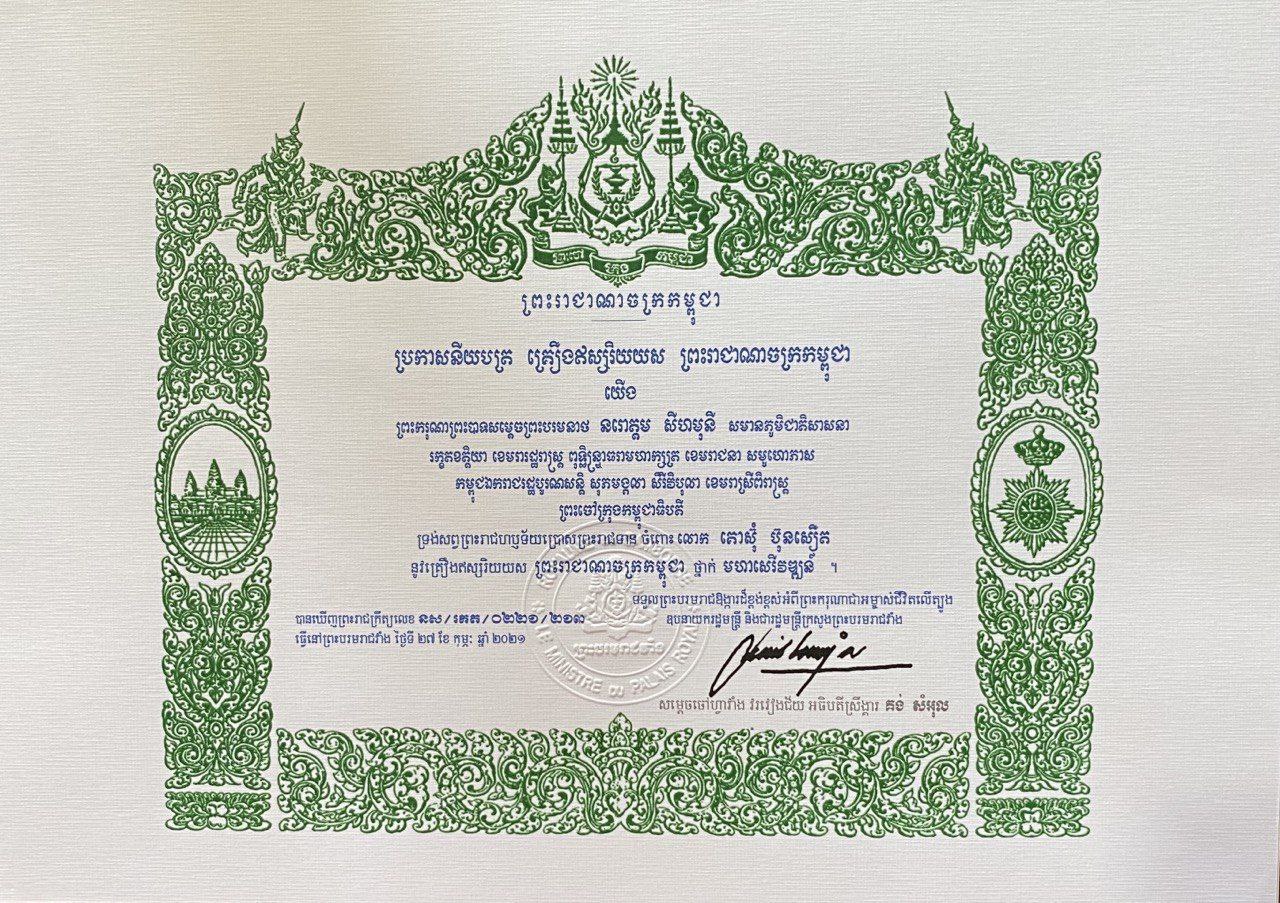 ព្រះរាជាណាចក្រកម្ពុជា
ប្រកាសនីយបត្រ គ្រឿងឥស្សរិយយស ព្រះរាជាណាចក្រកម្ពុជា
យើង
ព្រះករុណាព្រះបាទសម្តេចព្រះបរមនាថ នរោត្តម សីហមុនី សមានភូមិជាតិសាសនា
រក្ខតខត្តិយា ខេមរារដ្ឋរាស្ត្រ ពុទ្ធិន្ទ្រាធរាមហាក្សត្រ ខេមរាជនា សមូហោភាស
កម្ពុជឯករាជរដ្ឋបូរណសន្តិ សុភមង្គលា សិរីវិបុលា ខេមរាស្រីពិរាស្ត្រ
ព្រះចៅក្រុងកម្ពុជាធិបតី
ទ្រង់សព្វព្រះរាជហឫទ័យប្រោសព្រះរាជទាន ចំពោះ លោក តោស៊ុំ ប៊ុនស្បើត
នូវគ្រឿងឥស្សរិយយស ព្រះរាជាណាចក្រកម្ពុជា ថ្នាក់ មហាសេរីវឌ្ឍន៍ ។
ទទួលព្រះបរមរាជឱង្ការដ៏ខ្ពង់ខ្ពស់អំពីព្រះករុណាជាអម្ចាស់ជីវិតលើត្បូង
បានឃើញព្រះរាជក្រឹត្យលេខ នស/រកត/០២២១/២១៣
ឧបនាយករដ្ឋមន្ត្រី និងជារដ្ឋមន្ត្រីក្រសួងព្រះបរមរាជវាំង
ធ្វើនៅព្រះបរមរាជវាំង ថ្ងៃទី ២៧ ខែ កុម្ភៈ ឆ្នាំ ២០២១
ព្រះបរមរាជវាំង
LE MINISTRE DU PALAIS ROYAL
សម្តេចចៅហ្វាវាំង វរវៀងជ័យ អធិបតីស្រឹង្គារ គង់ សំអុល